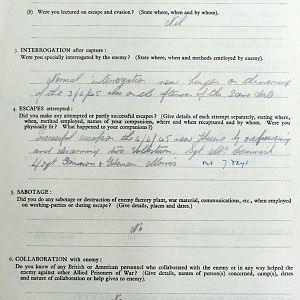 (b) Were you lectured on escape and evasion? (State where, when and by whom).
Nil
3. INTERROGATION after capture:
Were you specially interrogated by the enemy? (State where, when and methods employed by enemy).
Normal interrogation near on the morning
of the 3/4/45 also on the afternoon of the same date
4. ESCAPES attempted:
Did you make any attempted or partly successful escapes? (Give details of each attempt separately, stating where,
when, method employed, names of your companions, where and when recaptured and by whom. Were you
physically fit? What happened to your companions?)
Successful escape on the 4/45 near by overpowering
and disarming two Sgt Mc
L/Sgt & Morris
5. SABOTAGE:
Did you do any sabotage or destruction of enemy factory plant, war material, communications, etc., when employed
on working-parties or during escape? (Give details, places and dates.)
No
6. COLLABORATION with enemy:
Do you know of any British or American personnel who collaborated with the enemy or in any way helped the
enemy against other Allied Prisoners of War? (Give details, names of person(s) concerned, camp(s), dates
and nature of collaboration or help given to enemy).